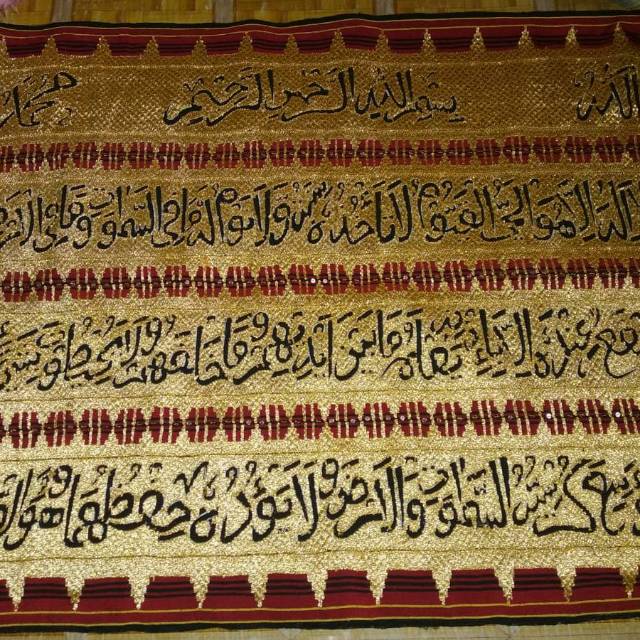 الله بسم الله الرحمن الرحيم محمد
إله إلا هو الحي القيوم لا تأخذه سنة ولا نوم له ما في السموات وما في الأرض
يشفع عنده إلا بإذنه يعلم ما بين أيديهم وما خلفهم ولا يحيطون بشيء
وسع كرسيه السموات والأرض ولا يؤده حفظهما وهو